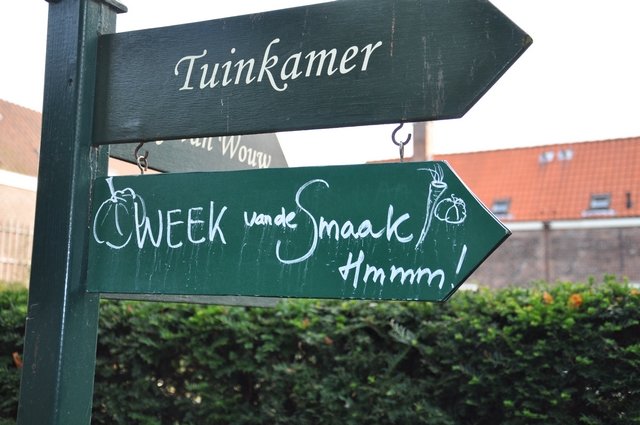 Tuinkamer
van Wouw
WEEK van de Smaak
Hmmm!